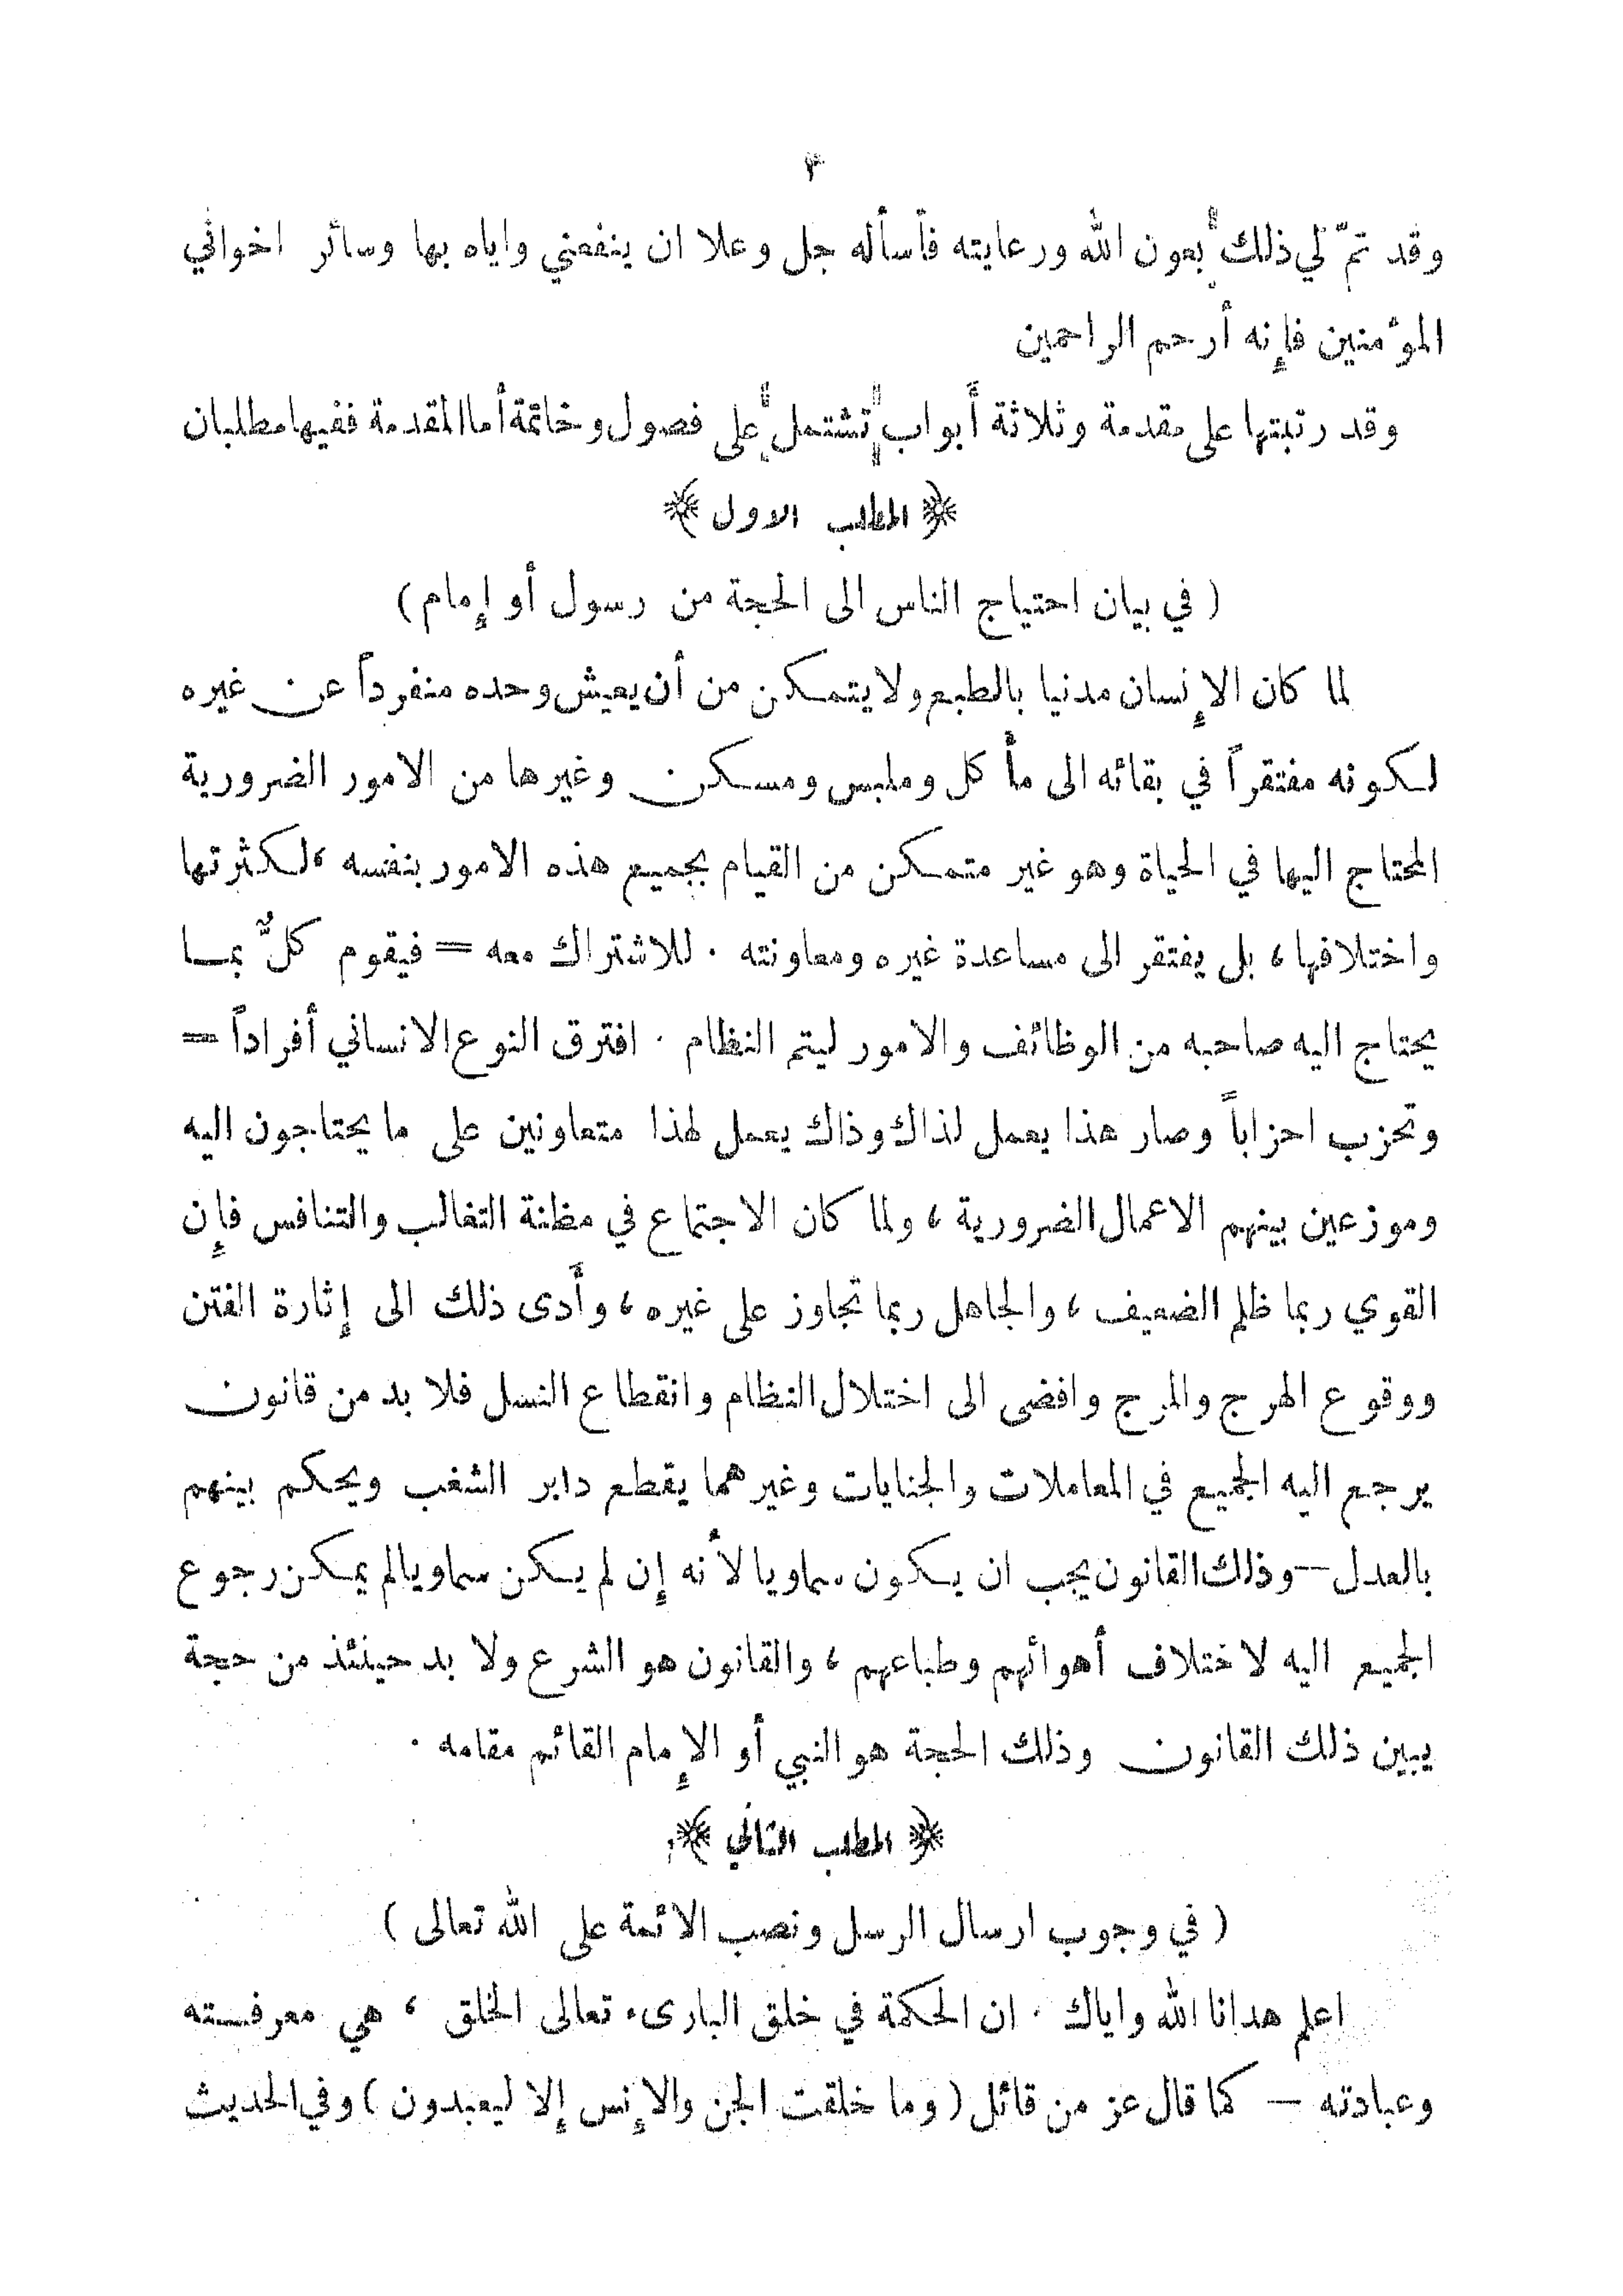 ٣
وقد تمّ لي ذلك بعون الله ورعايته فأسأله جل وعلا ان ينفعني واياه بها وسائر اخواني
المؤمنين فإنه أرحم الراحمين
وقد رتبتها على مقدمة وثلاثة أبواب تشتمل على فصول وخاتمة أما المقدمة ففيها مطلبان
﴿ المطلب الاول ﴾
( في بيان احتياج الناس الى الحجة من رسول أو إمام )
لما كان الإنسان مدنيا بالطبع ولا يتمكن من أن يعيش وحده منفرداً عن غيره
لكونه مفتقراً في بقائه الى مأكل وملبس ومسكن وغيرها من الامور الضرورية
المحتاج اليها في الحياة وهو غير متمكن من القيام بجميع هذه الامور بنفسه ، لكثرتها
واختلافها ، بل يفتقر الى مساعدة غيره ومعاونته . للاشتراك معه = فيقوم كلٌّ بما
يحتاج اليه صاحبه من الوظائف والامور ليتم النظام . افترق النوع الانساني أفراداً =
وتحزب احزاباً وصار هذا يعمل لذاك وذاك يعمل لهذا متعاونين على ما يحتاجون اليه
وموزعين بينهم الاعمال الضرورية ، ولما كان الاجتماع في مظنة التغالب والتنافس فإن
القوي ربما ظلم الضعيف ، والجاهل ربما تجاوز على غيره ، وأدى ذلك الى إثارة الفتن
ووقوع الهرج والمرج وافضى الى اختلال النظام وانقطاع النسل فلا بد من قانون
يرجع اليه الجميع في المعاملات والجنايات وغيرهما يقطع دابر الشغب ويحكم بينهم
بالعدل — وذلك القانون يجب ان يكون سماويا لأنه إن لم يكن سماويا لم يمكن رجوع
الجميع اليه لاختلاف أهوائهم وطباعهم ، والقانون هو الشرع ولا بد حينئذ من حجة
يبين ذلك القانون وذلك الحجة هو النبي أو الإمام القائم مقامه .
﴿ المطلب الثاني ﴾
( في وجوب ارسال الرسل ونصب الائمة على الله تعالى )
اعلم هدانا الله واياك . ان الحكمة في خلق البارىء تعالى الخلق ، هي معرفته
وعبادته — كما قال عز من قائل ( وما خلقت الجن والإنس إلا ليعبدون ) وفي الحديث